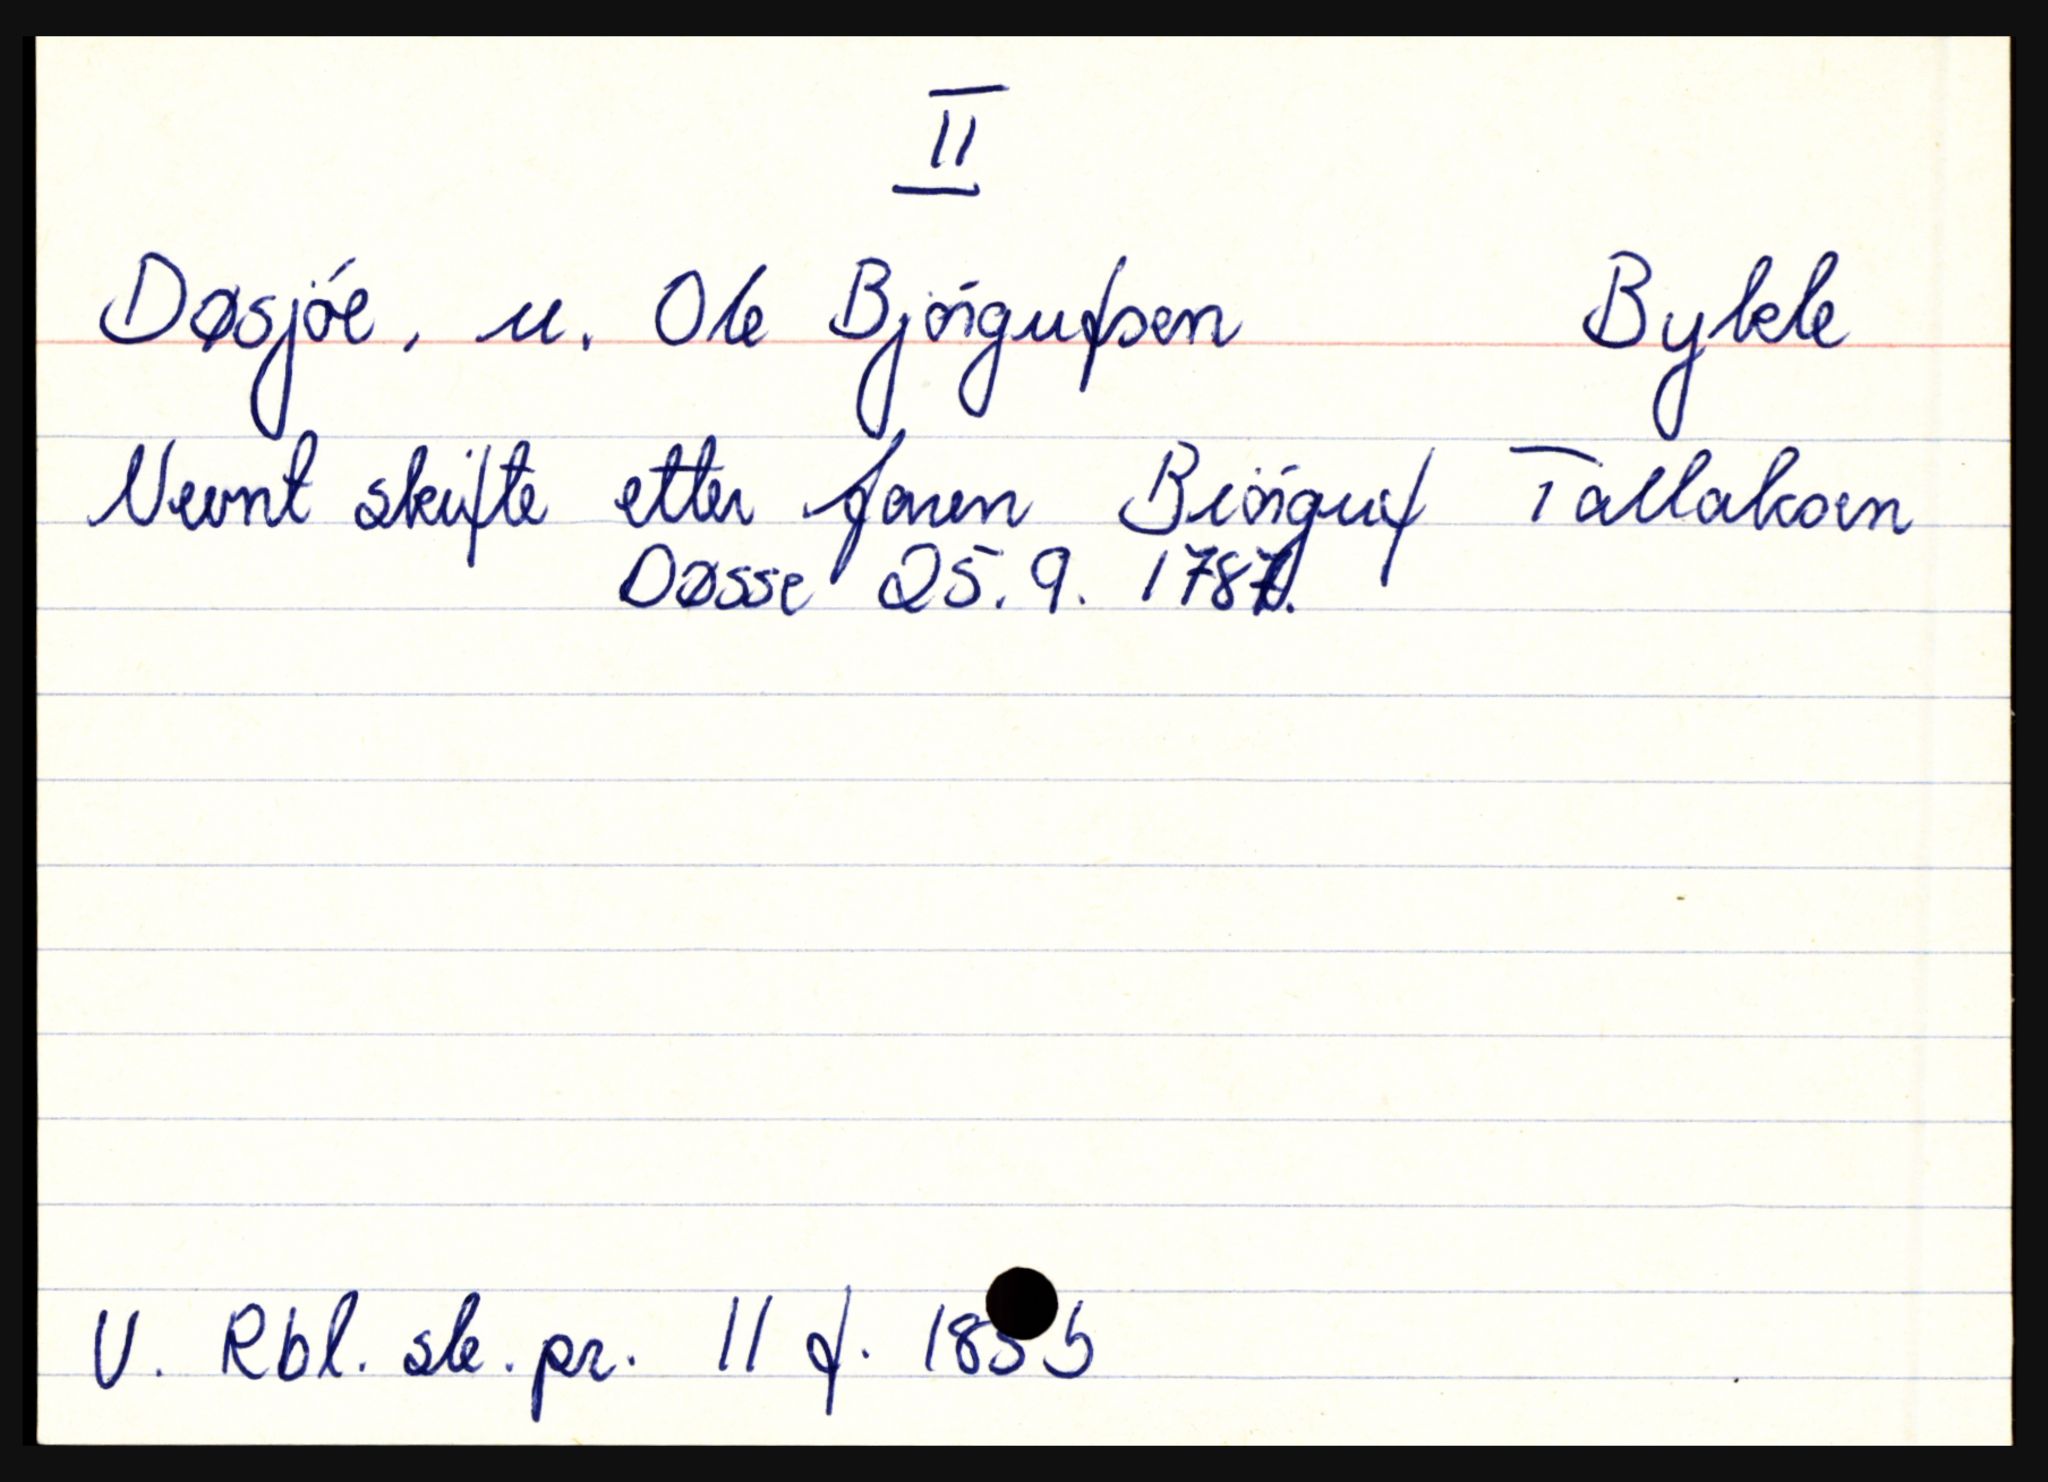 II
Døsjóe, u. Ole Bjórgufsen Bykle
Nevnt skifte etter faren Biórguf Tallaksen
Døsse 25.9. 1787.
V. Rbl. sk. pr. 11 f.